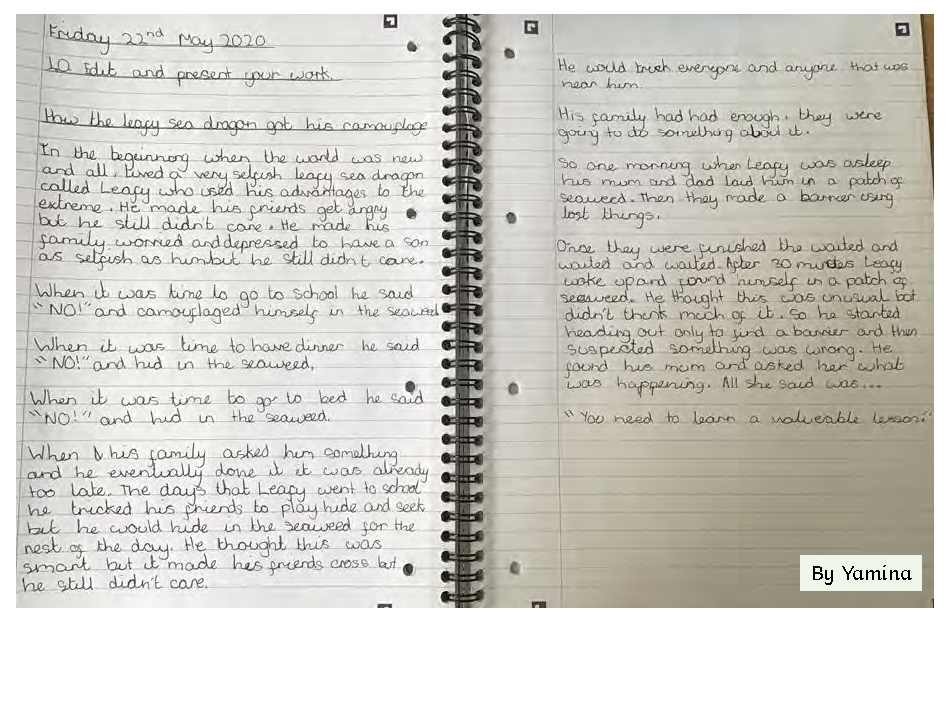 Friday 22nd May 2020
LO Edit and present your work.
How the leafy sea dragon got his camouflage
In the beginning when the world was new
and all, lived a very selfish leafy sea dragon
called Leafy who used his advantages to the
extreme. He made his friends get angry
but he still didn't care. He made his
family worried and depressed to have a son
as selfish as him but he still didn't care.
When it was time to go to school he said
"NO!" and camouflaged himself in the seaweed
When it was time to have dinner he said
"NO!" and hid in the seaweed,
When it was time to go to bed he said
"NO!" and hid in the seaweed.
When his family asked him something
and he eventually done it it was already
too late. The days that Leafy went to school
he tricked his friends to play hide and seek
but he would hide in the seaweed for the
rest of the day. He thought this was
smart but it made his friends cross but
he still didn't care.
He would trick everyone and anyone that was
near him.
His family had had enough, they were
going to do something about it.
So one morning when Leafy was asleep
his mum and dad laid him in a patch of
seaweed. Then they made a barrier using
lost things.
Once they were finished the waited and
waited and waited. After 30 minutes Leafy
woke up and found himself in a patch of
seaweed. He thought this was unusual but
didn't think much of it. So he started
heading out only to find a barrier and then
suspected something was wrong. He
found his mum and asked her what
was happening. All she said was...
"You need to learn a valuerable lesson."
By Yamina